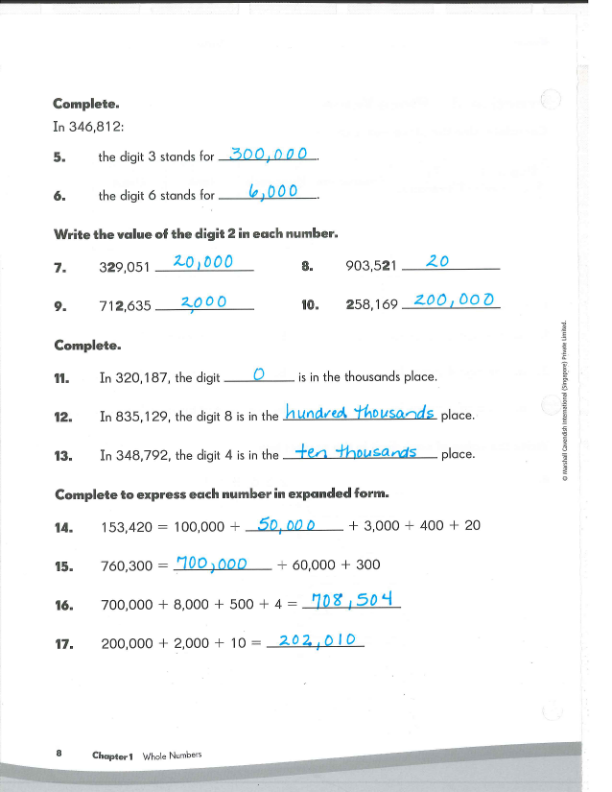 Complete.
In 346,812:
5. the digit 3 stands for 300,000.
6. the digit 6 stands for 6,000.
Write the value of the digit 2 in each number.
7. 329,051 20,000 8. 903,521 20
9. 712,635 2,000 10. 258,169 200,000
Complete.
11. In 320,187, the digit 0 is in the thousands place.
12. In 835,129, the digit 8 is in the hundred thousands place.
13. In 348,792, the digit 4 is in the ten thousands place.
Complete to express each number in expanded form.
14. 153,420 = 100,000 + 50,000 + 3,000 + 400 + 20
15. 760,300 = 700,000 + 60,000 + 300
16. 700,000 + 8,000 + 500 + 4 = 708,504
17. 200,000 + 2,000 + 10 = 202,010
© Marshall Cavendish International (Singapore) Private Limited.
8 Chapter 1 Whole Numbers